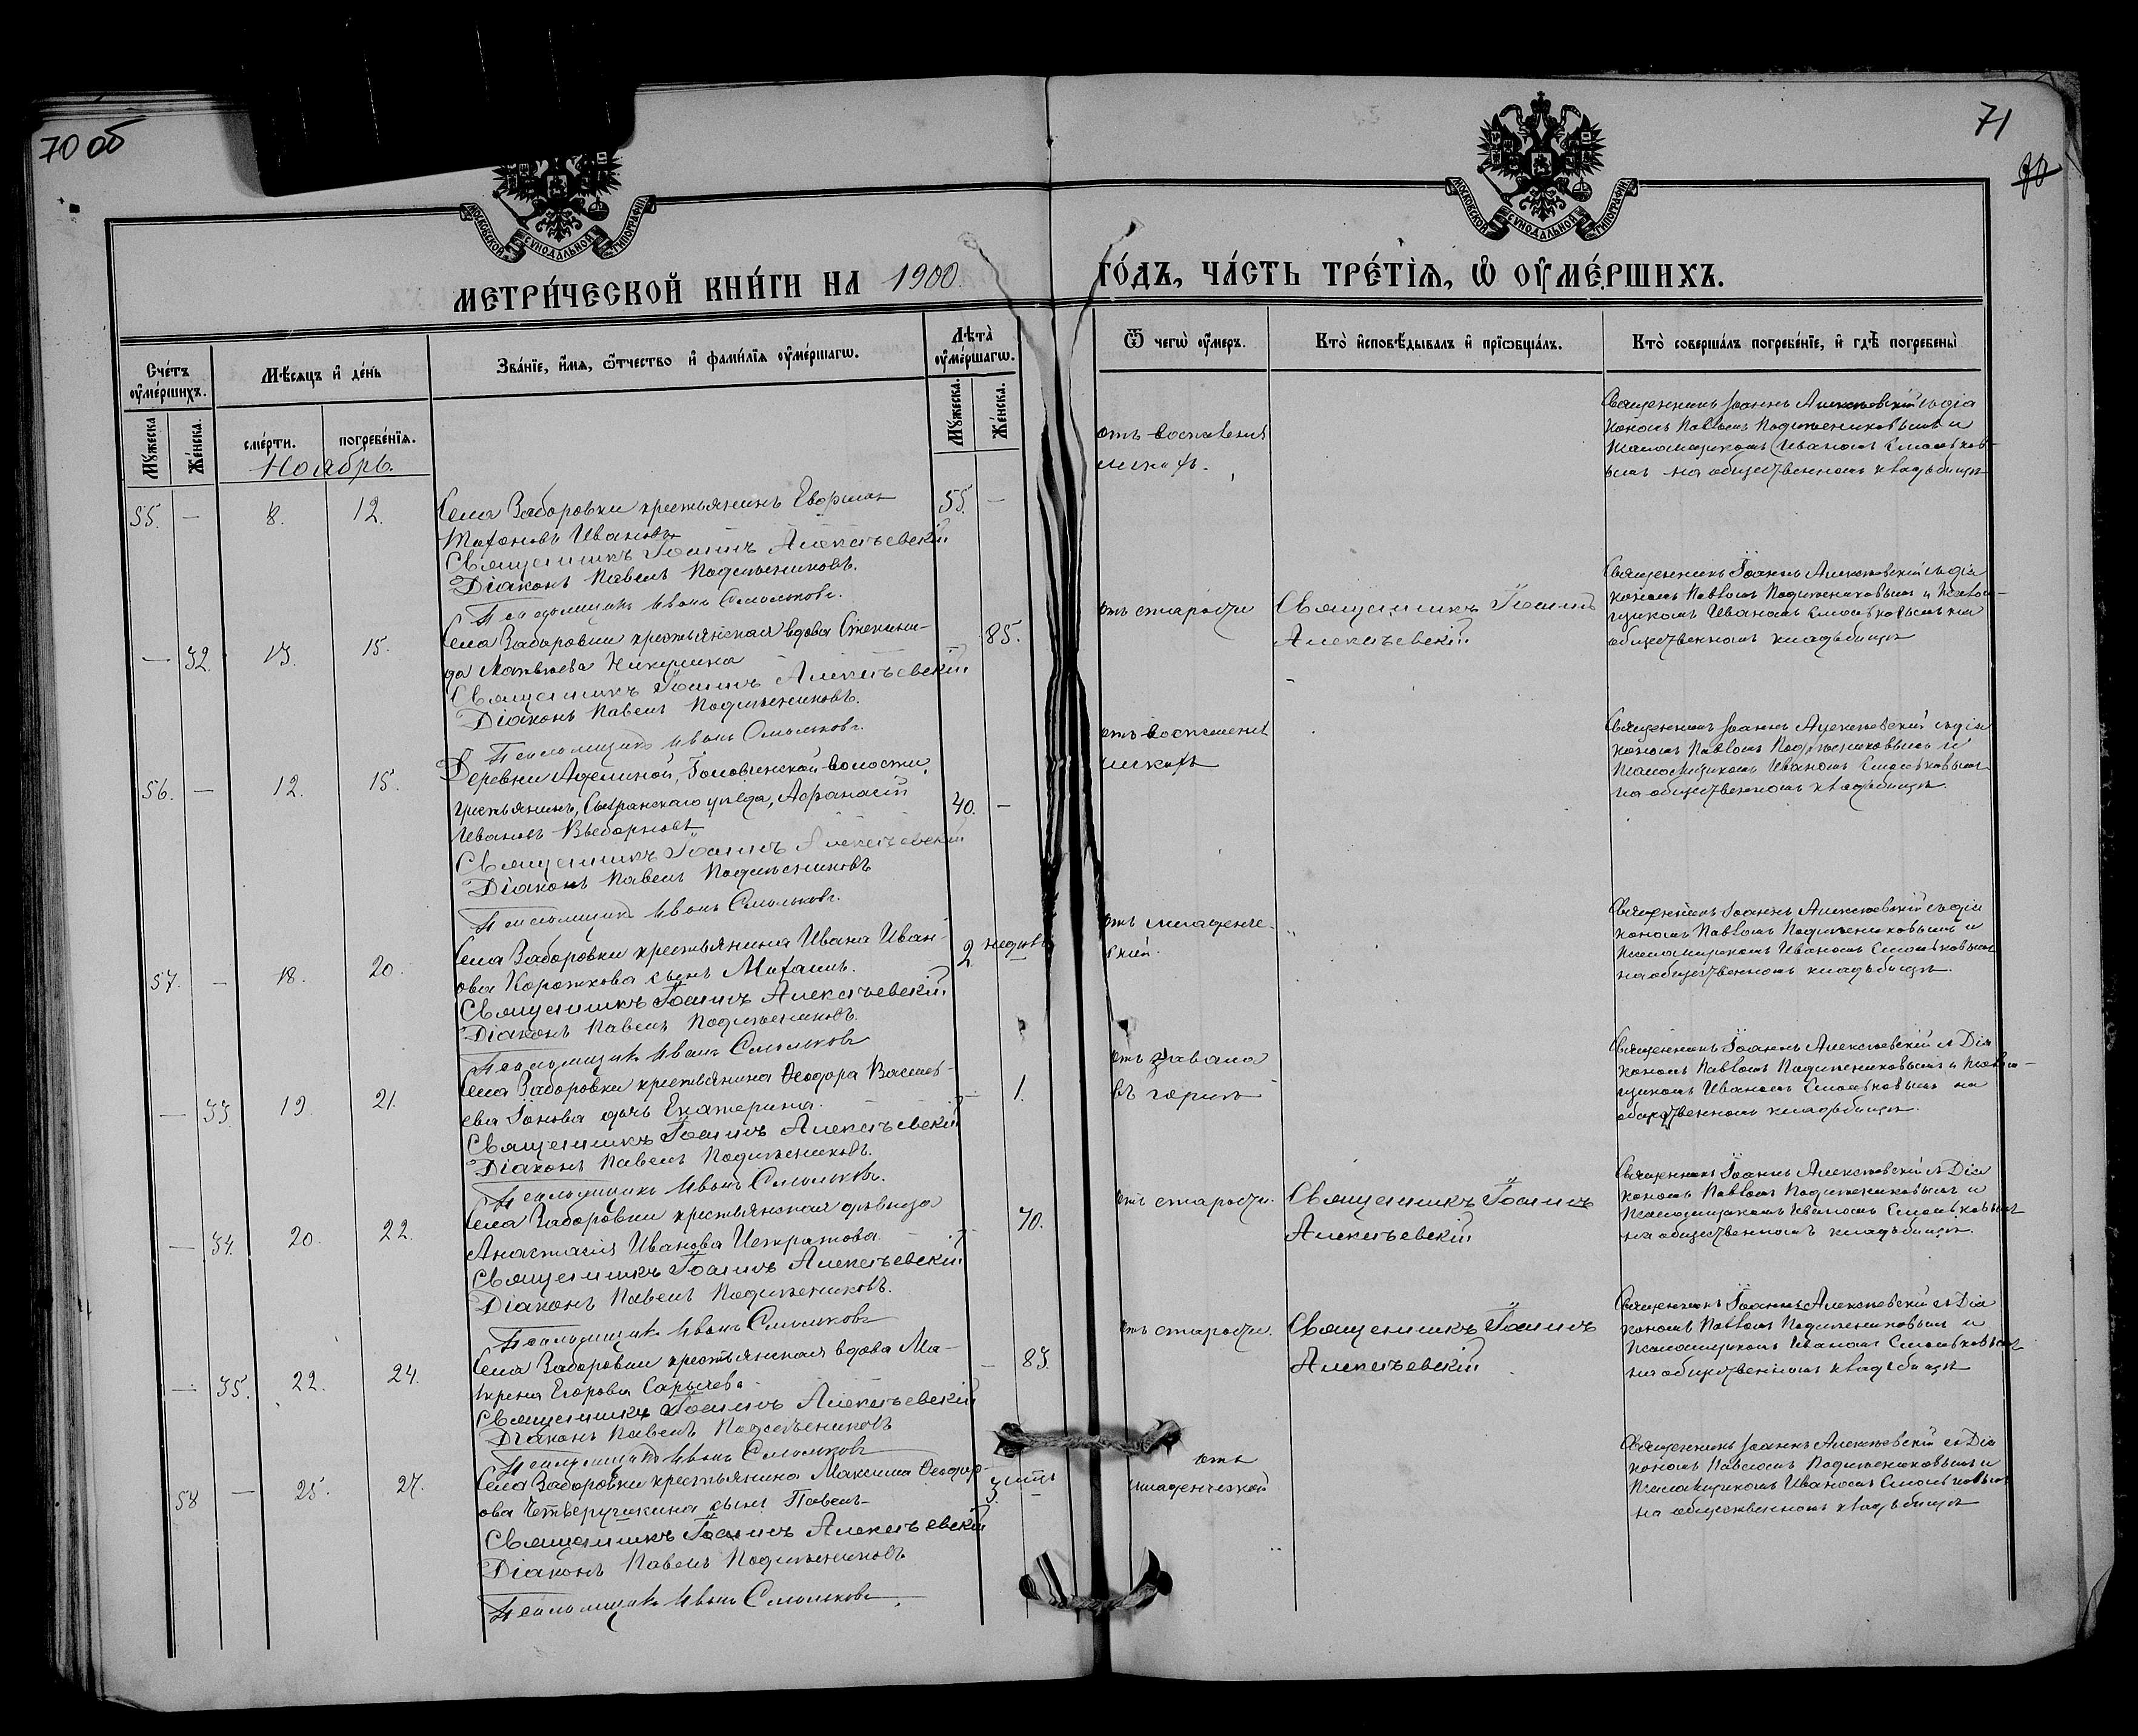 70 об
71
70
МОСКОВСКОЙ СѴНОДАЛЬНОЙ ТИПОГРАФІИ
МОСКОВСКОЙ СѴНОДАЛЬНОЙ ТИПОГРАФІИ
МЕТРИ́ЧЕСКОЙ КНИ́ГИ НА 1900
ГО́ДЪ, ЧА́СТЬ ТРЕ́ТІѦ, Ѡ҆ ОУ҆МЕ́РШИХЪ.
Сче́тъ оу҆ме́ршихъ.
Му́жеска
Же́нска.
Мѣ́сяцъ и҆ де́нь
сме́рти.
погребе́нїѧ.
Зва́нїе, и҆́мѧ, ѻ҆́тчество и҆ фами́лїѧ оу҆ме́ршагѡ.
Лѣта̀ оу҆ме́ршагѡ.
Му́жеска.
Же́нска.
Ѿ чегѡ̀ оу҆́меръ.
Кто̀ и҆сповѣ́дывалъ и҆ прїѡбща́лъ.
Кто̀ соверша́лъ погребе́нїе, и҆ гдѣ̀ погребены̀
Ноябрь.
55. — 8. 12. Села Заборовки крестьянинъ 55. —
Ивановъ
Священникъ Іоаннъ Алексѣевскій
Діаконъ Павелъ Подлѣсниковъ.
Псаломщикъ Иванъ Смольковъ.
отъ воспаленія
легкихъ.
Священникъ Іоаннъ Алексѣевскій съ діа
кономъ Павломъ Подлѣсниковымъ и
псаломщикомъ Иваномъ Смольков-
ымъ на общественномъ кладбищѣ
— 32. 13. 15. Села Заборовки крестьянская вдова Степани- 85.
да Матвѣева Никерина
Священникъ Іоаннъ Алексѣевскій
Діаконъ Павелъ Подлѣсниковъ.
Псаломщикъ Иванъ Смольковъ.
отъ старости
Священникъ Іоаннъ
Алексѣевскій
Священникъ Іоаннъ Алексѣевскій съ діа
кономъ Павломъ Подлѣсниковымъ и псалом-
щикомъ Иваномъ Смольковымъ на
общественномъ кладбищѣ
56. — 12. 15. Деревни Головинской волости,
крестьянинъ, Сызранскаго уѣзда, Афанасій 40. —
Ивановъ Выборновъ
Священникъ Іоаннъ Алексѣевскій
Діаконъ Павелъ Подлѣсниковъ
Псаломщикъ Иванъ Смольковъ.
отъ воспаленія
легкихъ
Священникъ Іоаннъ Алексѣевскій съ діа
кономъ Павломъ Подлѣсниковымъ и
псаломщикомъ Иваномъ Смольковымъ
на общественномъ кладбищѣ.
57. — 18. 20. Села Заборовки крестьянина Ивана Иван- 2 недѣль —
ова Короткова сынъ Михаилъ.
Священникъ Іоаннъ Алексѣевскій
Діаконъ Павелъ Подлѣсниковъ.
Псаломщикъ Иванъ Смольковъ
отъ младенче-
ской.
Священникъ Іоаннъ Алексѣевскій съ діа
кономъ Павломъ Подлѣсниковымъ и
псаломщикомъ Иваномъ Смольковымъ
на общественномъ кладбищѣ.
— 33. 19. 21. Села Заборовки крестьянина Ѳеодора Василь- — 1.
ева Іонова дочь Екатерина.
Священникъ Іоаннъ Алексѣевскій
Діаконъ Павелъ Подлѣсниковъ.
Псаломщикъ Иванъ Смольковъ.
отъ завала
въ горлѣ
Священникъ Іоаннъ Алексѣевскій съ Діа
кономъ Павломъ Подлѣсниковымъ и псалом-
щикомъ Иваномъ Смольковымъ на
общественномъ кладбищѣ.
— 34. 20. 22. Села Заборовки крестьянская дѣвица 70.
Анастасія Иванова Истратова.
Священникъ Іоаннъ Алексѣевскій
Діаконъ Павелъ Подлѣсниковъ.
Псаломщикъ Иванъ Смольковъ
отъ старости.
Священникъ Іоаннъ
Алексѣевскій
Священникъ Іоаннъ Алексѣевскій съ Діа
кономъ Павломъ Подлѣсниковымъ и
псаломщикомъ Иваномъ Смольковымъ
на общественномъ кладбищѣ.
— 35. 22. 24. Села Заборовки крестьянская вдова Ма- — 83.
крена Егорова Сарычева
Священникъ Іоаннъ Алексѣевскій
Діаконъ Павелъ Подлѣсниковъ
Псаломщикъ Иванъ Смольковъ
отъ старости.
Священникъ Іоаннъ
Алексѣевскій
Священникъ Іоаннъ Алексѣевскій съ Діа
кономъ Павломъ Подлѣсниковымъ и
псаломщикомъ Иваномъ Смольковымъ
на общественномъ кладбищѣ
58 — 25. 27. Села Заборовки крестьянина Максима Ѳеодор- 3 лѣтъ —
ова Четверушкина сынъ Павелъ
Священникъ Іоаннъ Алексѣевскій
Діаконъ Павелъ Подлѣсниковъ
Псаломщикъ Иванъ Смольковъ.
отъ
младенческой
Священникъ Іоаннъ Алексѣевскій съ Діа
кономъ Павломъ Подлѣсниковымъ и
псаломщикомъ Иваномъ Смольковымъ
на общественномъ кладбищѣ